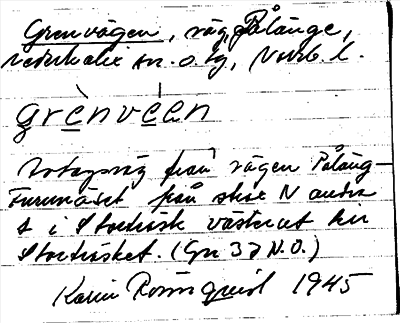 Grenvägen, väg, Pålänge,
Nederkalix sn. o. tg, Nbtb. l.
grènveèn
Utfartsväg från vägen Påläng-
Furunäset från strax N andra
t i Storträsk västerut till
Storträsket. (Gr 37 N.O.)
Karin Rosenquist 1945